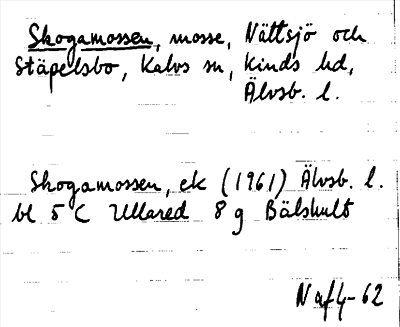 Skogamossen, mosse, Nättsjö och
Stäpelsbo, Kalvs sn, Kinds hd,
Älvsb. l.
Skogamossen, ek (1961) Älvsb. l.
bl 5 C Ullared 8 g Bälshult
N af 4-62